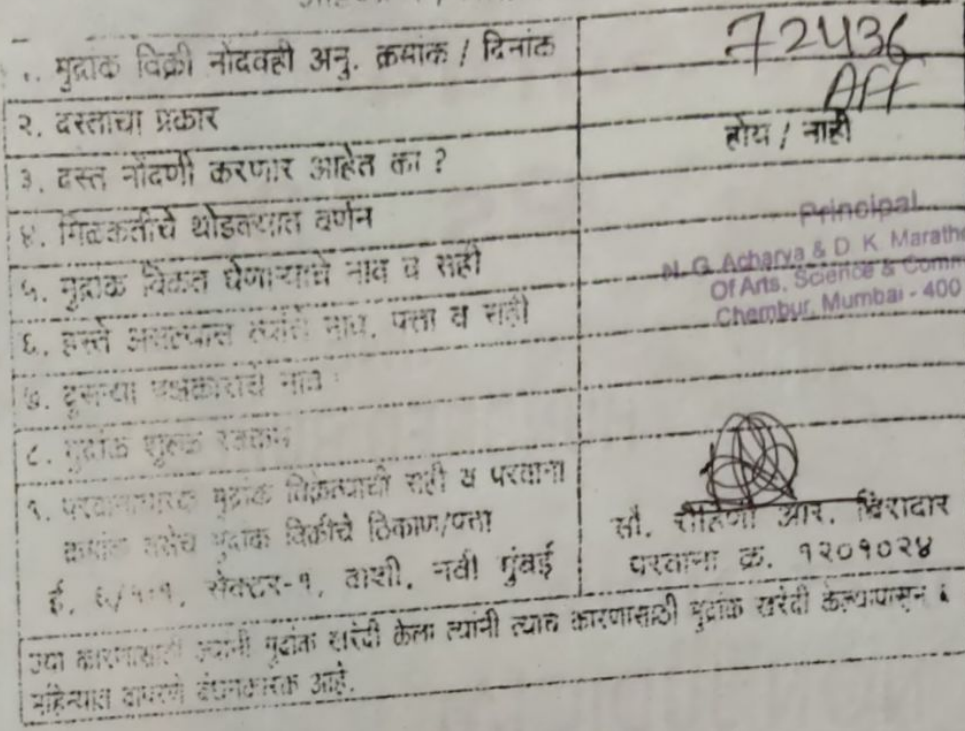 १. मुद्रांक विक्री नोंदवही अनु. क्रमांक / दिनांक 72436
२. दस्ताचा प्रकार Aff
३. दस्त नोंदणी करणार आहेत का ? होय / नाही
४. मिळकतीचे थोडक्यात वर्णन
Principal
५. मुद्रांक विकत घेणाऱ्याचे नाव व सही
N. G. Acharya & D. K. Marathe
Of Arts, Science & Comm
Chembur, Mumbai - 400
६. हस्ते असल्यास त्यांचे नाव, पत्ता व सही
७. दुसऱ्या पक्षकाराचे नाव
८. मुद्रांक शुल्क रक्कम
९. परवानाधारक मुद्रांक विक्रेत्याची सही व परवाना
क्रमांक तसेच मुद्रांक विक्रीचे ठिकाण/पत्ता
सौ. रोहिणी आर. बिरादार
सेक्टर-१, वाशी, नवी मुंबई
परवाना क्र. १२०१०२४
ज्या कारणासाठी ज्यांनी मुद्रांक खरेदी केला त्यांनी त्याच कारणासाठी मुद्रांक खरेदी केल्यापासून ६
महिन्यात वापरणे बंधनकारक आहे.